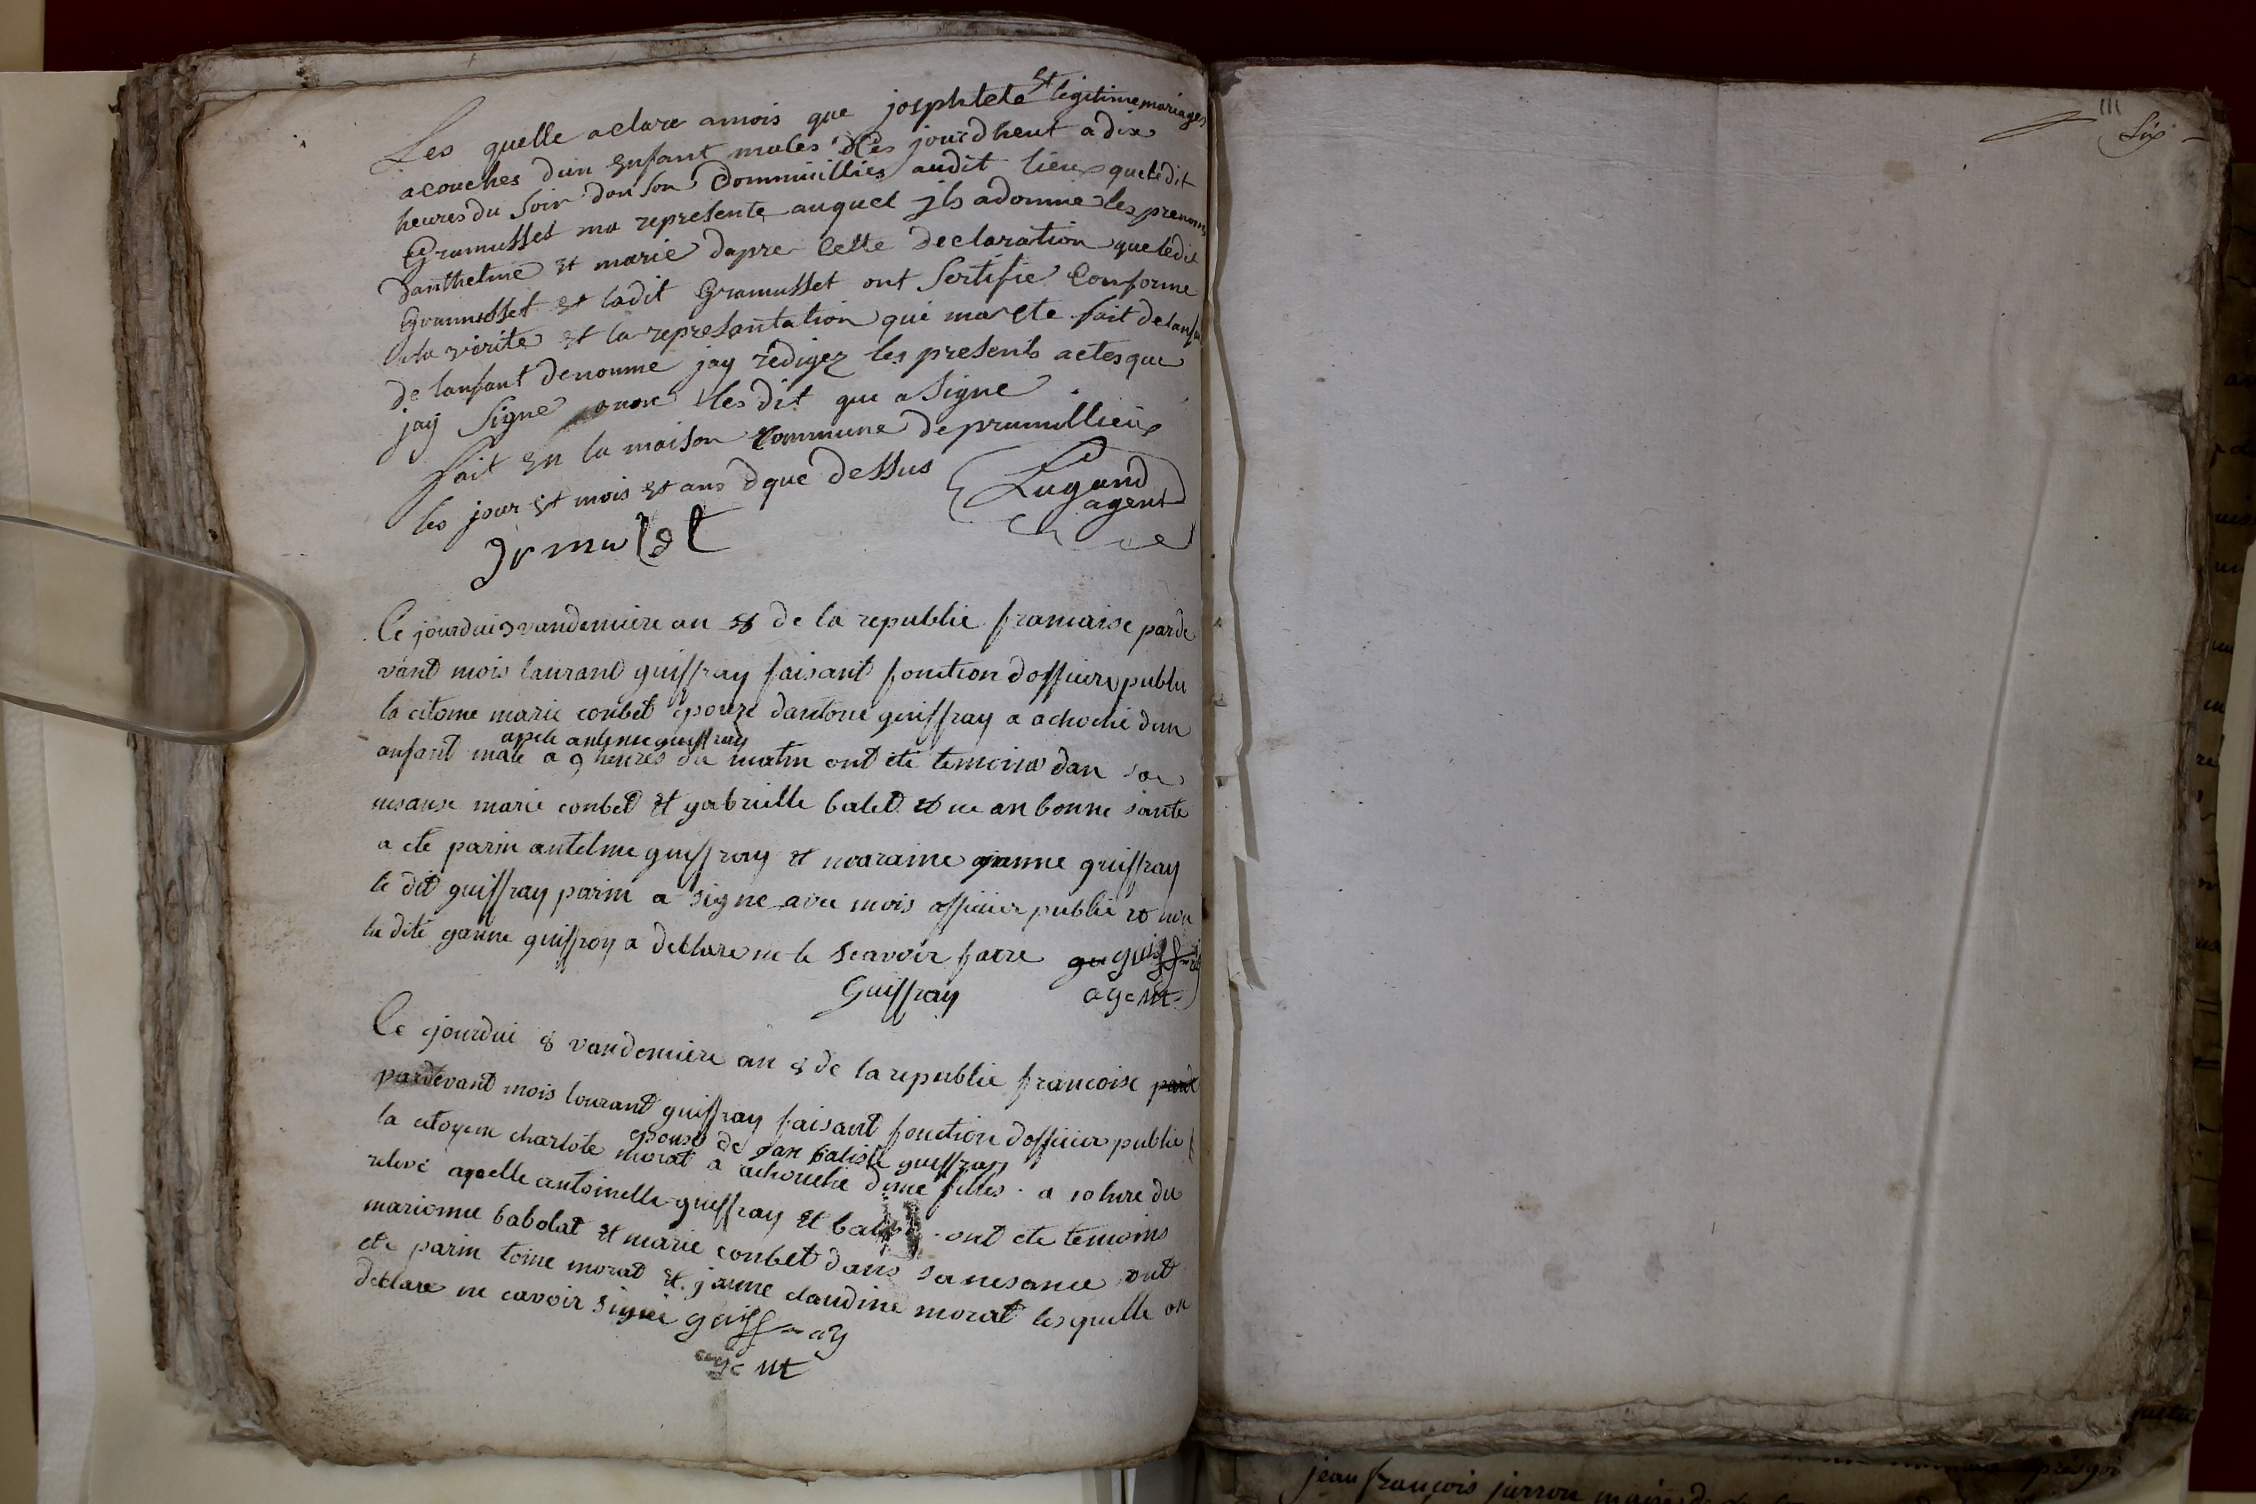 Les quelle aclare amois que josphtete et legitime mariages
acouches dun enfant males Dès jourdheut a dix
heures du Soir dou son Dommicillies audit lieux queledit
Gramusset ma represente auquel jls adonne les prenoms
Danthelme et marie dapre Cette declaration queledit
Gramusset et ladit Gramusset ont Sertifie Conforme
ala vérite et la represantation qui ma ete fait delanfan
de lanfant denomme jay rédigez les presents actes que
jay Signe avec lesdit que a Signe
fait En la maison Commune de prumillieux
les jour et mois et ans Dque Dessus
Lugand
agent
grmuset
Ce jourdui 7 vandemiere an 8 de la republic francaise parde
vant mois laurant guiffray faisant fonction dofficier public
la citoine marie conbet epouze dantone guiffray a achoche dun
apele antelme guiffray
anfant male a 9 heures du matin ont ete temoins dan sa
nesanse marie conbet et gabrielle balet et ne an bonne sante
a ete parin antelme guiffray et maraine ganne guiffray
le dit guiffray parin a signe avec mois officier public et non
la dite ganne guiffray a declare ne le scavoir faire gu guiffray
Guiffray agent
Ce jourdui 8 vandemiere an 8 de la republic francoise pard
pardevant mois lourant guiffray faisant fonction dofficier public
epouse de jan batiste guiffray
la citoyene charlote morat a achouche dune filles a 10 hure du
releve apelle antoinelle guiffray et ont ete temoins
marionne babolat et marie conbet dans sa nesance ont
ete parin toine morat et janne claudine morat lesquelle on
declare ne cavoir signé guiffray
agent
111
Six
jean françois jarron maire de